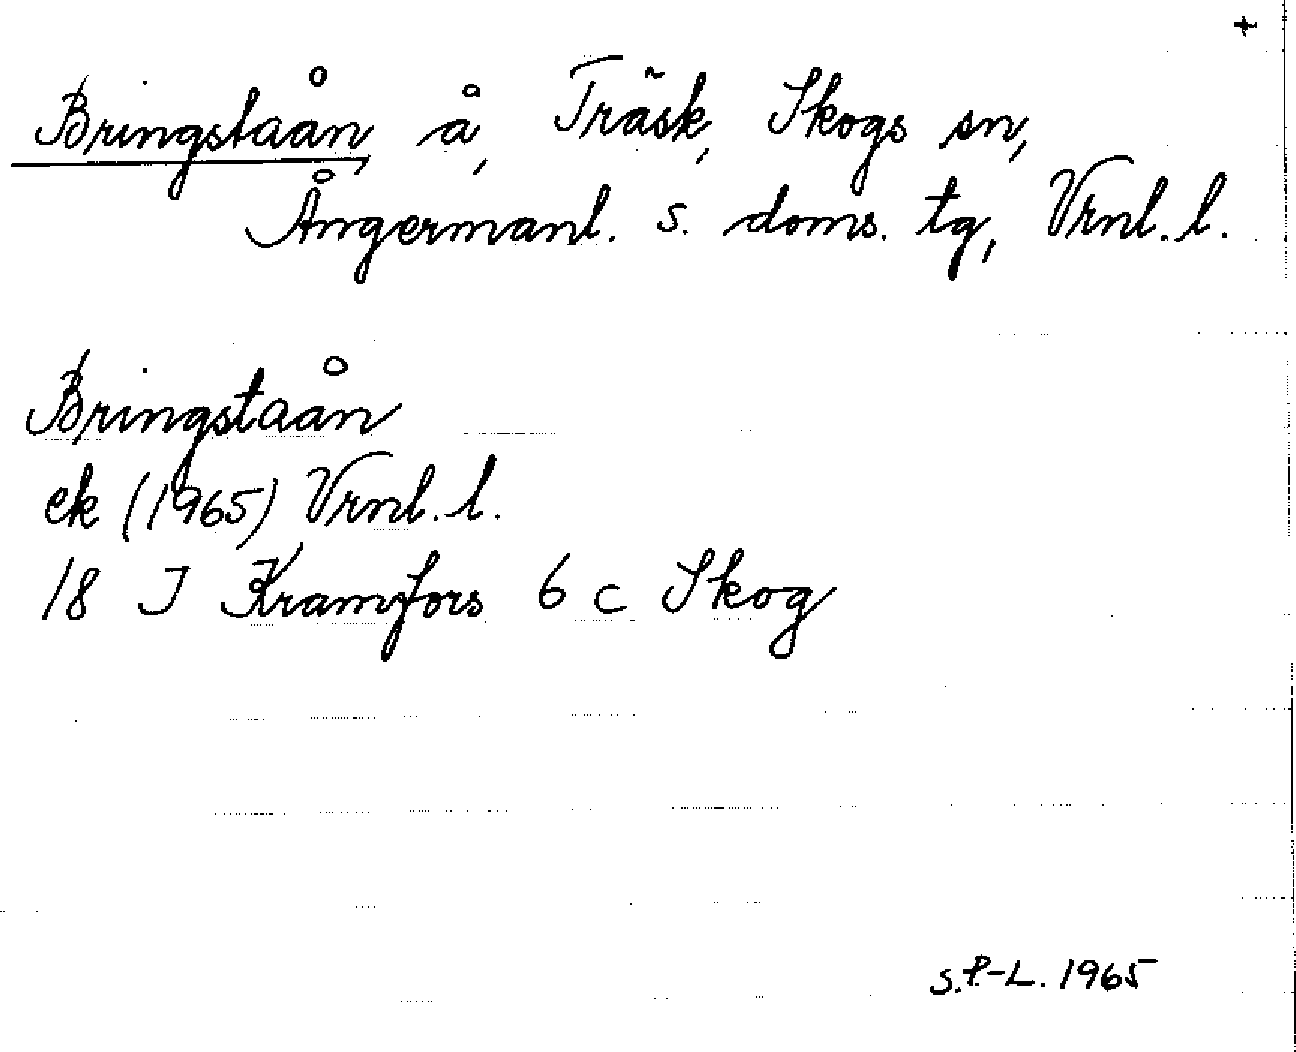 +
Bringstaån, å, Träsk, Skogs sn,
Ångermanl. s. doms. tg, Vrnl. l.
Bringstaån
ek (1965) Vrnl. l.
18 J Kramfors 6 c Skog
S.P-L. 1965